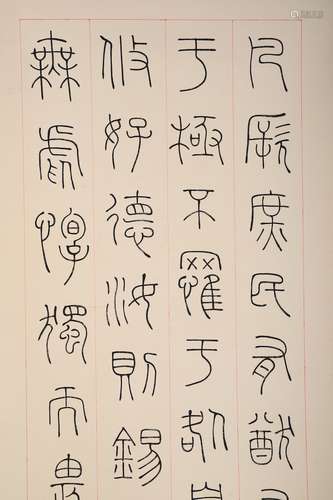 凡厥庶民有猷有
于極不罹于咎皇
攸好德汝則錫
無虐惸獨而畏